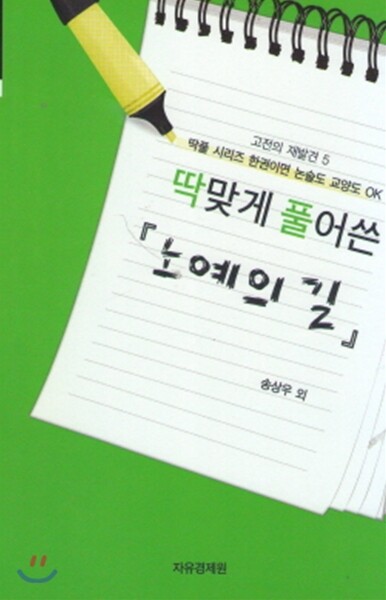 고전의 재발견 5
딱풀 시리즈 한권이면 논술도 교양도 OK
딱맞게 풀어쓴
『노예의 길』
송상우 외
자유경제원